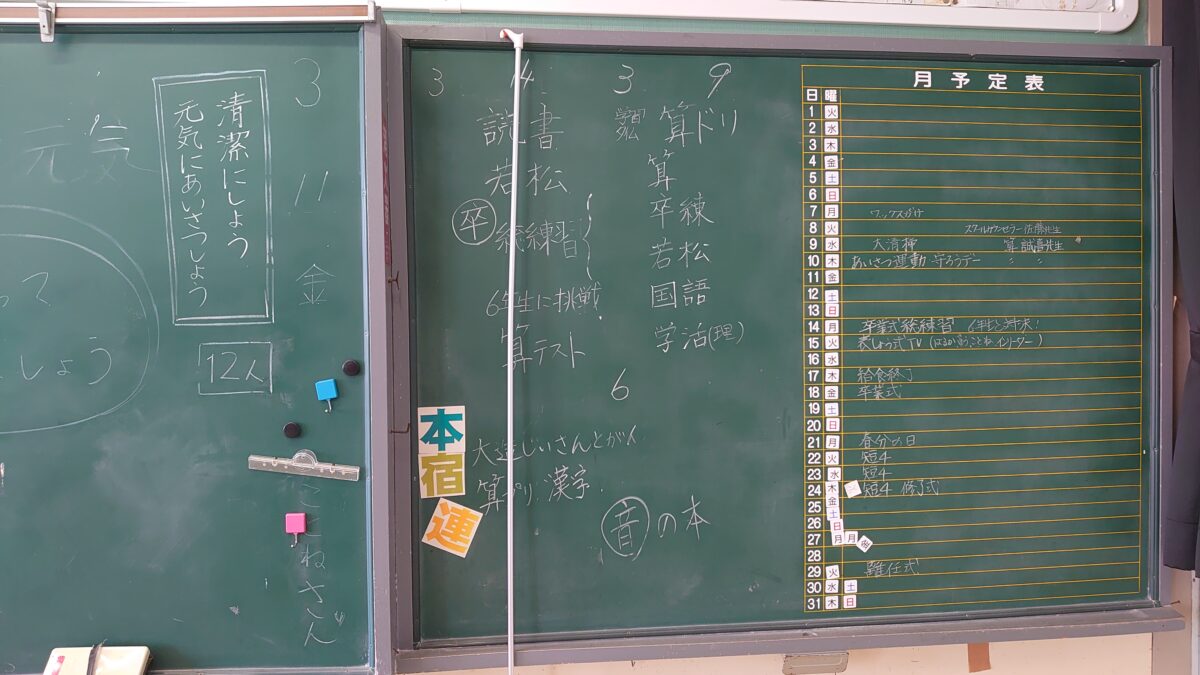 元気
って
しょう
清潔にしょう
元気にあいさつしょう
12人
3
11
金
ことねさん
3 14
読書
若松
卒総練習
6年生に挑戦
算テスト
3 9
学習タイム 算ドリ
算
卒練
若松
国語
学活(理)
6
本
宿
連
大造じいさんとがん
算プリ 漢字
音の本
月予定表
日 曜
1 火
2 水
3 木
4 金
5 土
6 日
7 月 ワックスがけ
8 火 スクールカウンセラー佐藤先生
9 水 大清掃 算 誠喜先生
10 木 あいさつ運動 守ろうデー 〃 〃
11 金
12 土
13 日
14 月 卒業式総練習 6年生と対決!
15 火 表しょう式TV
16 水
17 木 給食終了
18 金 卒業式
19 土
20 日
21 月 春分の日
22 火 短4
23 水 短4
24 木 短4 修了式
25 金
26 土 日
27 月 月
28
29 火 離任式
30 水 土
31 木 日